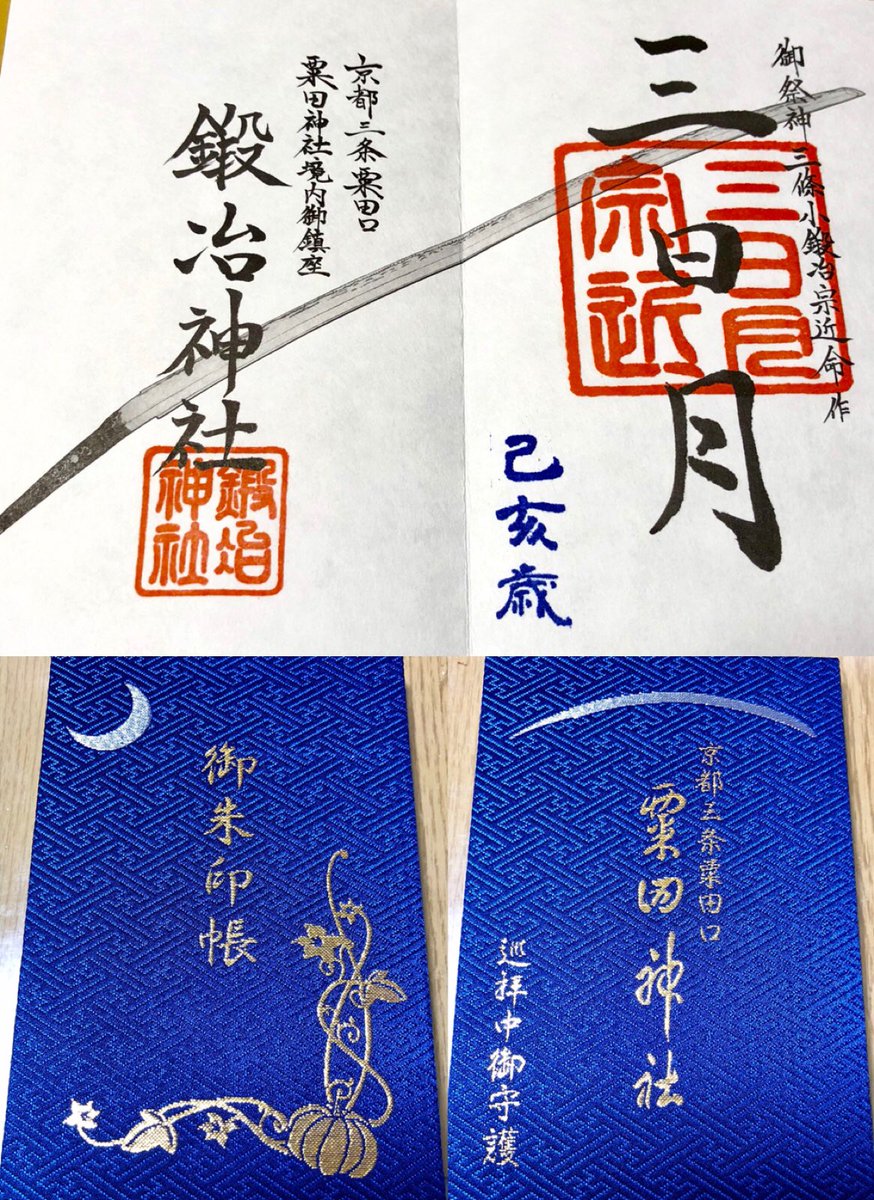 御祭神 三條小鍛冶宗近命作
三日月
三日月
宗近
己亥歳
京都三条粟田口
粟田神社境内御鎮座
鍛冶神社
鍛冶
神社
御朱印帳
京都三条粟田口
粟田神社
巡拝中御守護